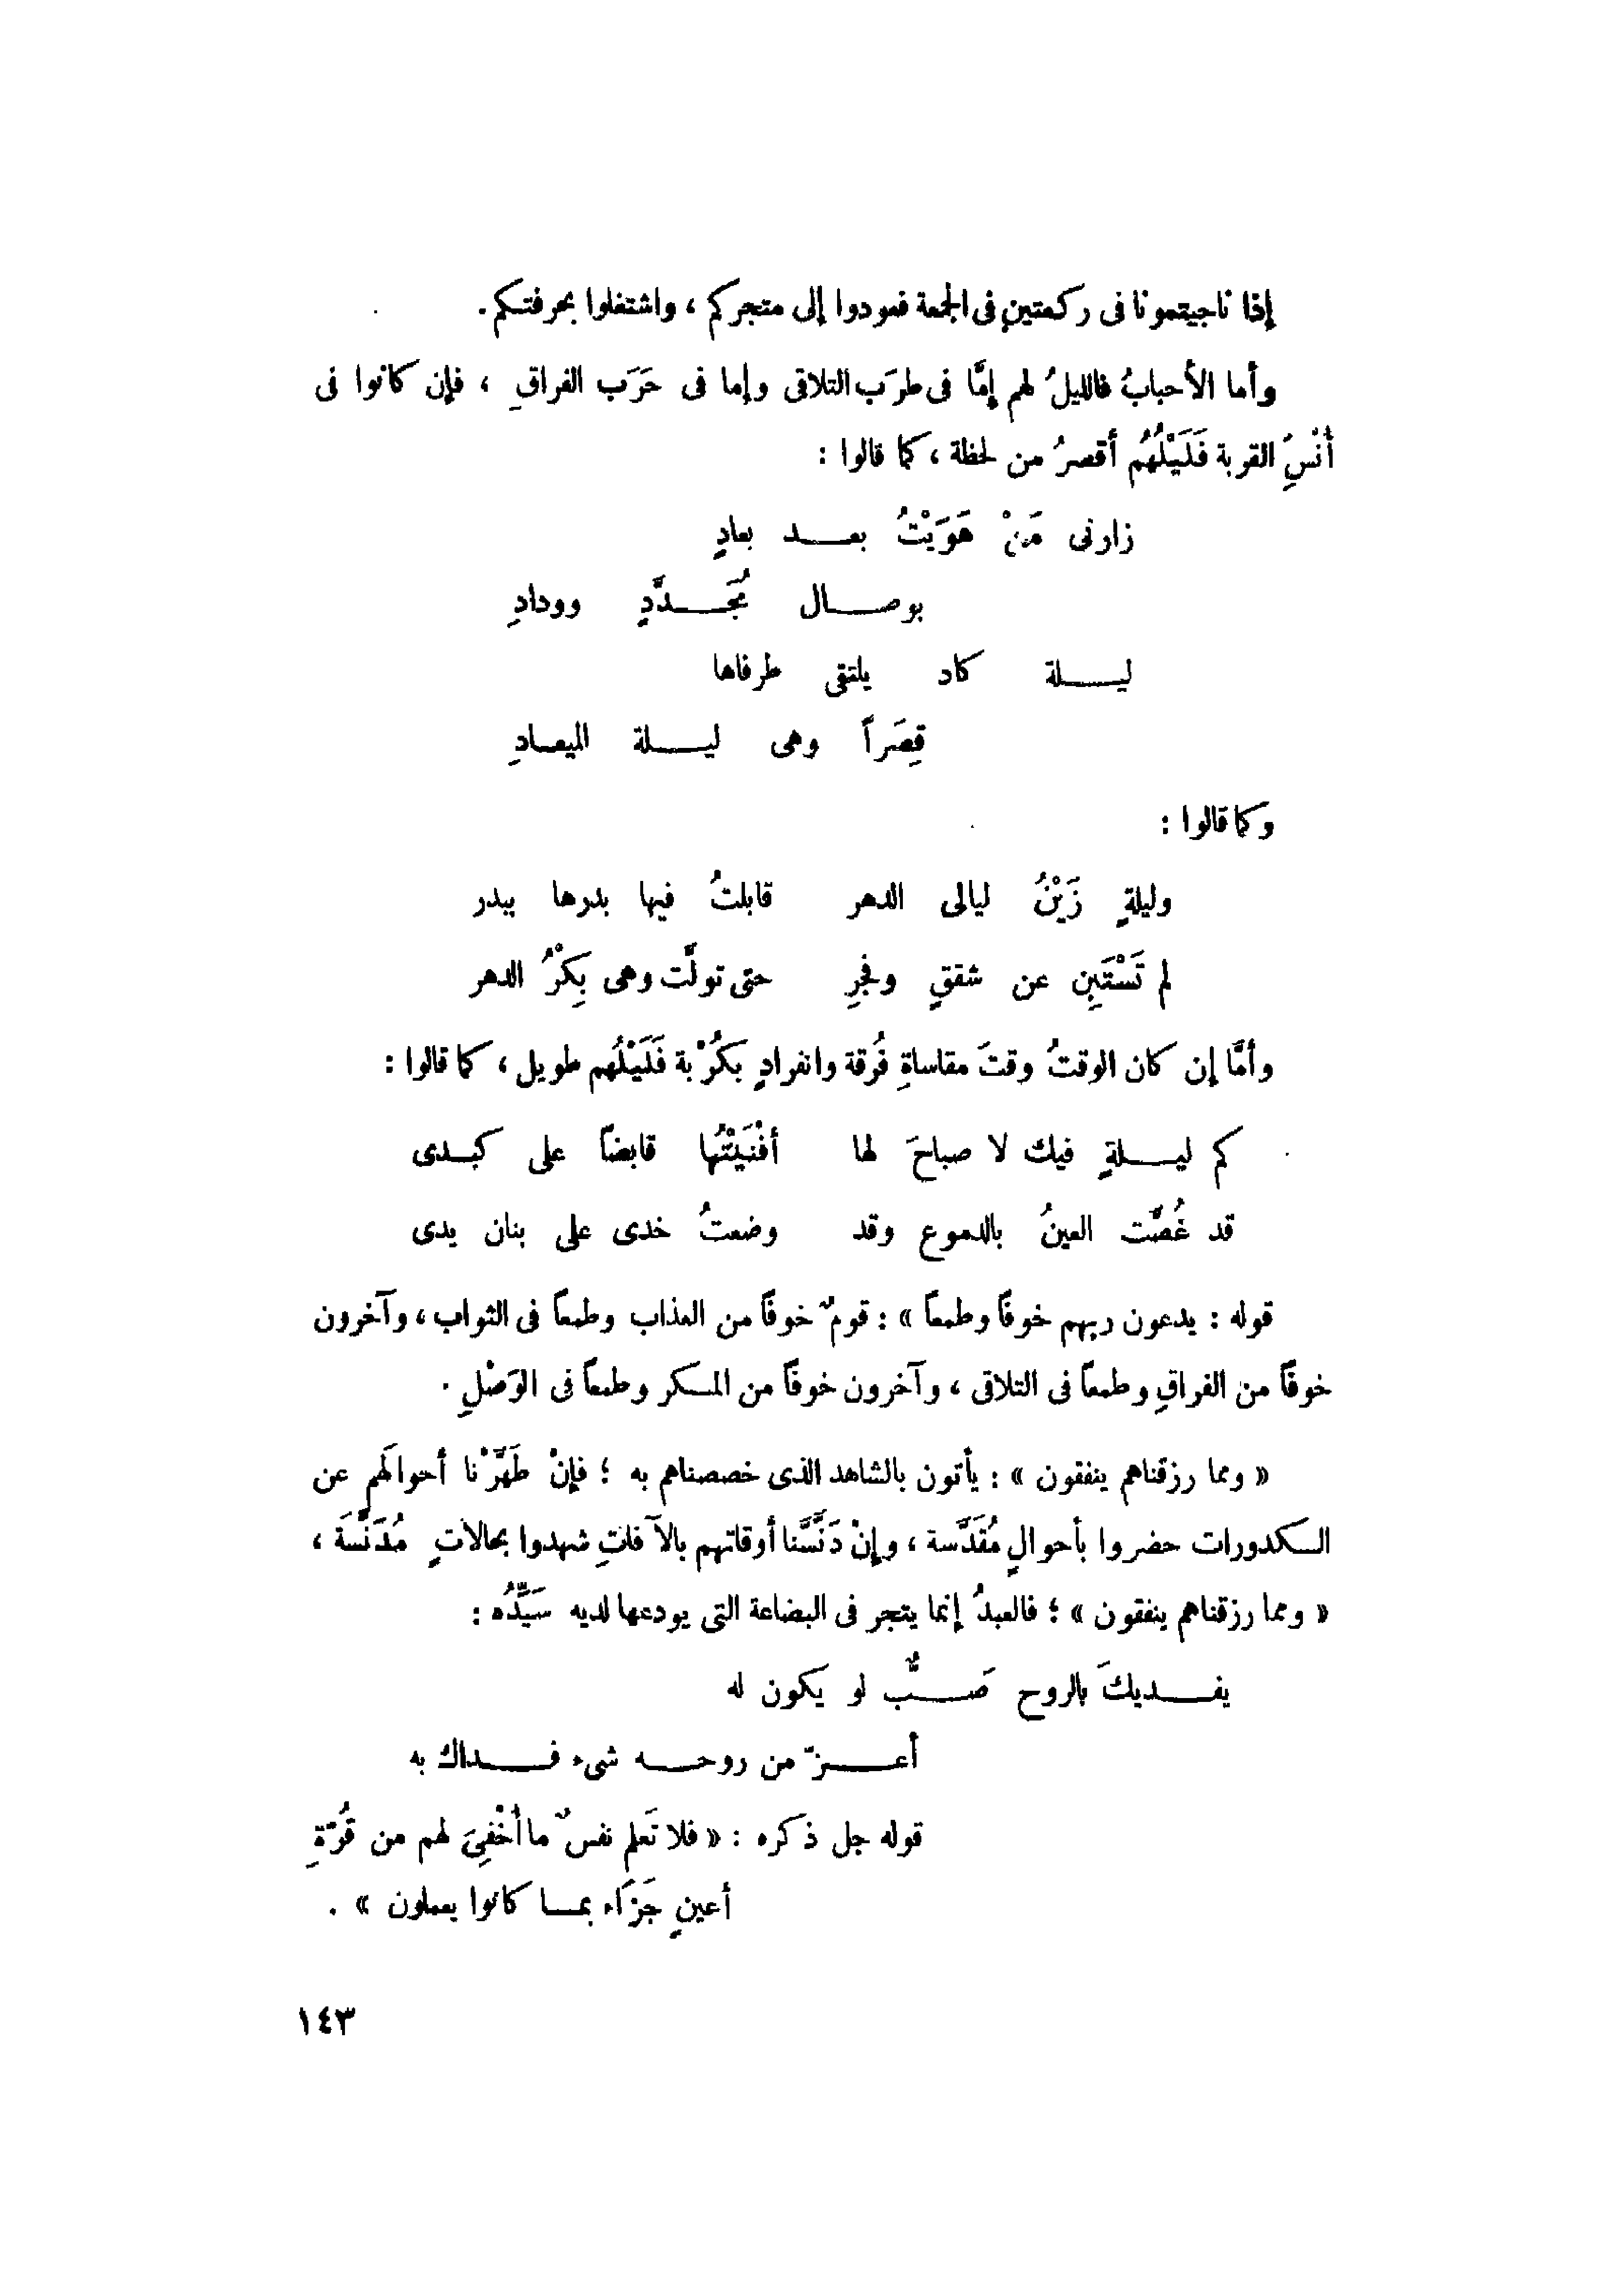 إذا ناجيتمونا فى ركعتينِ فى الجمعة فعودوا إلى متجركم ، واشتغلوا بحرفتكم .
وأما الأحبابُ فالليلُ لهم إمَّا فى طرَب التلاقى وإما فى حَرَب الفراقِ ، فإن كانوا فى
أُنْسِ القربة فَلَيْلُهُم أقصرُ من لحظة ، كما قالوا :
زارنى مَنْ هَوَيْتُ بعد بعادٍ
بوصال مُجَدَّدٍ وودادِ
ليلة كاد يلتقى طرفاها
قِصَراً وهى ليلة الميعادِ
وكما قالوا :
وليلةٍ زَيْنُ ليالى الدهر قابلتُ فيها بدرها ببدر
لم تَسْتَبِن عن شفقٍ وفجرِ حتى تولَّت وهى بِكْرُ الدهر
وأمَّا إن كان الوقتُ وقتَ مقاساةِ فُرقة وانفرادٍ بكُرْبة فَلَيْلُهم طويل ، كما قالوا :
كم ليلةٍ فيك لا صباحَ لها أفْنَيْتُها قابضاً على كبدى
قد غُصَّت العينُ بالدموع وقد وضعتُ خدى على بنان يدى
قوله : يدعون ربهم خوفاً وطمعاً » : قومٌ خوفاً من العذاب وطمعاً فى الثواب ، وآخرون
خوفاً من الفراقِ وطمعاً فى التلاقى ، وآخرون خوفاً من المكر وطمعاً فى الوَصْلِ .
« ومما رزقناهم ينفقون » : يأتون بالشاهد الذى خصصناهم به ؛ فإنْ طَهَّرْنا أحوالَهم عن
الكدورات حضروا بأحوالٍ مُقَدَّسة ، وإنْ دَنَّسْنا أوقاتهم بالآفاتِ شهدوا بحالاتٍ مُدَنَّسَة ،
« ومما رزقناهم ينفقون » ؛ فالعبدُ إنما يتجر فى البضاعة التى يودعها لديه سَيِّدُه :
يفديكَ بالروح صَبٌّ لو يكون له
أعزّ من روحه شىء فداك به
قوله جل ذكره : « فلا تَعلم نفسٌ ما أُخْفِىَ لهم من قُرّةِ
أعينٍ جَزَاء بما كانوا يعملون » .
١٤٣